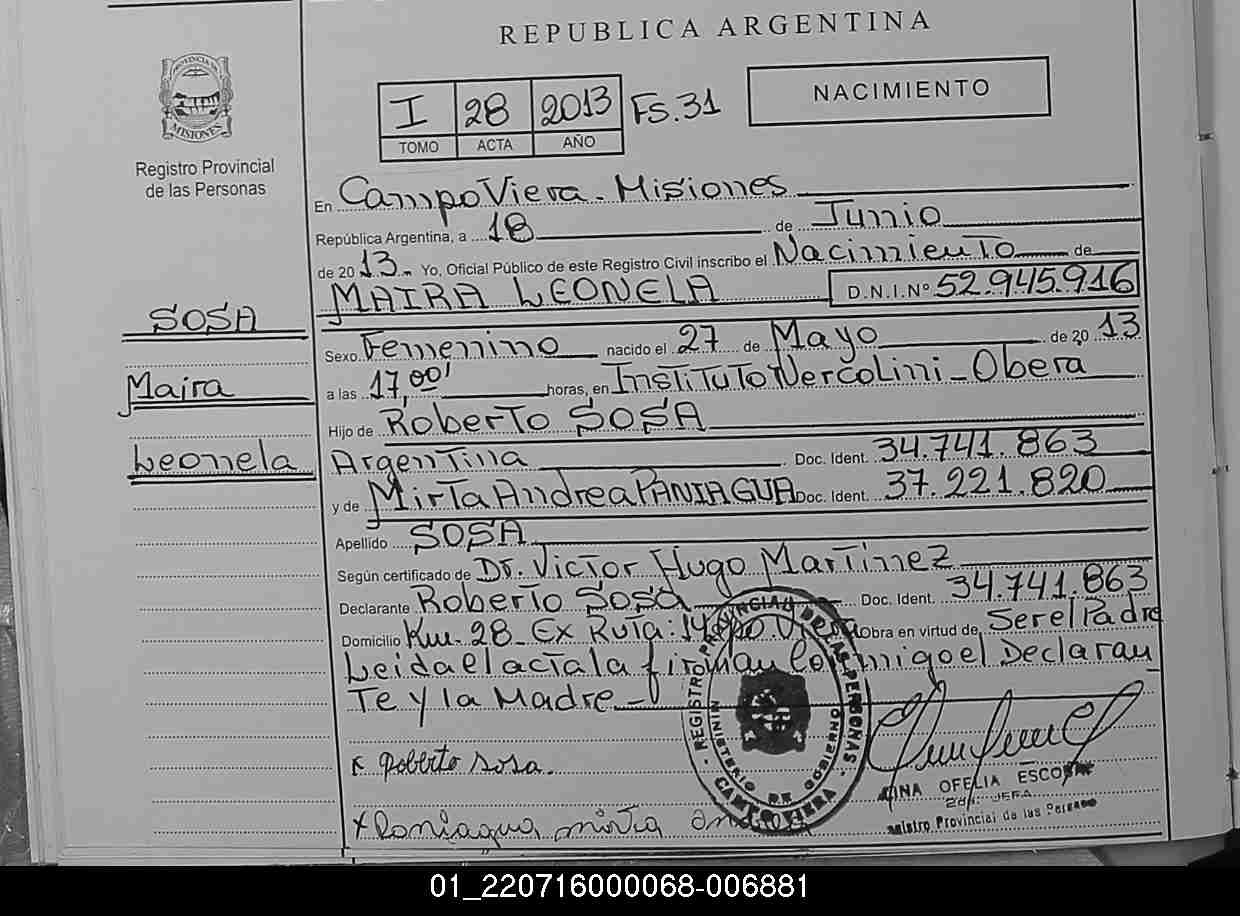 REPUBLICA ARGENTINA
PROVINCIA DE
MISIONES
Registro Provincial
de las Personas
I 28 2013 Fs.31
TOMO ACTA AÑO
NACIMIENTO
En Campo Viera - Misiones
República Argentina, a 18 de Junio
de 2013. Yo, Oficial Público de este Registro Civil inscribo el Nacimiento de
MAIRA LEONELA D.N.I.Nº 52.945.916
SOSA
Maira
Leonela
Sexo Femenino nacido el 27 de Mayo de 2013
a las 17,00' horas, en Instituto Vercolini - Obera
Hijo de Roberto SOSA
Argentina Doc. Ident. 34.741.863
y de Mirta Andrea PANIAGUA Doc. Ident. 37.221.820
Apellido SOSA
Según certificado de Dr. Victor Hugo Martinez
Declarante Roberto Sosa Doc. Ident. 34.741.863
Domicilio Km. 28 Ex Ruta: 14 Viera Obra en virtud de Ser el Padre
Leida el acta la firman Conmigo el Declaran
Te y la Madre
Roberto Sosa.
Paniagua mirta
REGISTRO PROVINCIAL DE LAS PERSONAS
MINISTERIO DE GOBIERNO
CAMPO VIERA
OFELIA
JEFA
Provincial de las
01_220716000068-006881